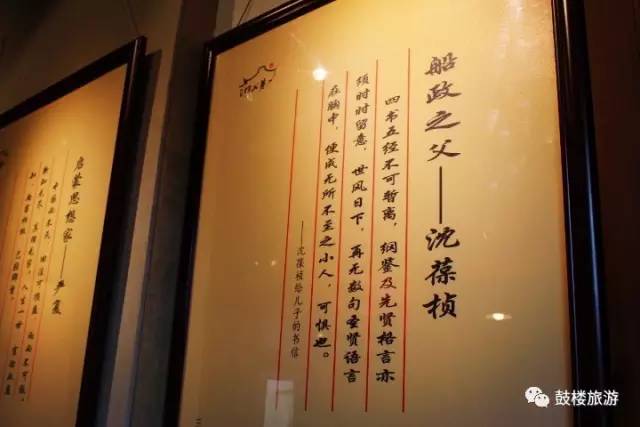 船政之父——沈葆桢
四书五经不可暂离，纲鉴及先贤格言亦
须时时留意，世风日下，再无数句圣贤语言
在胸中，便成无所不至之小人，可惧也。
——沈葆桢给儿子的书信
启蒙思想家——严复
鼓楼旅游